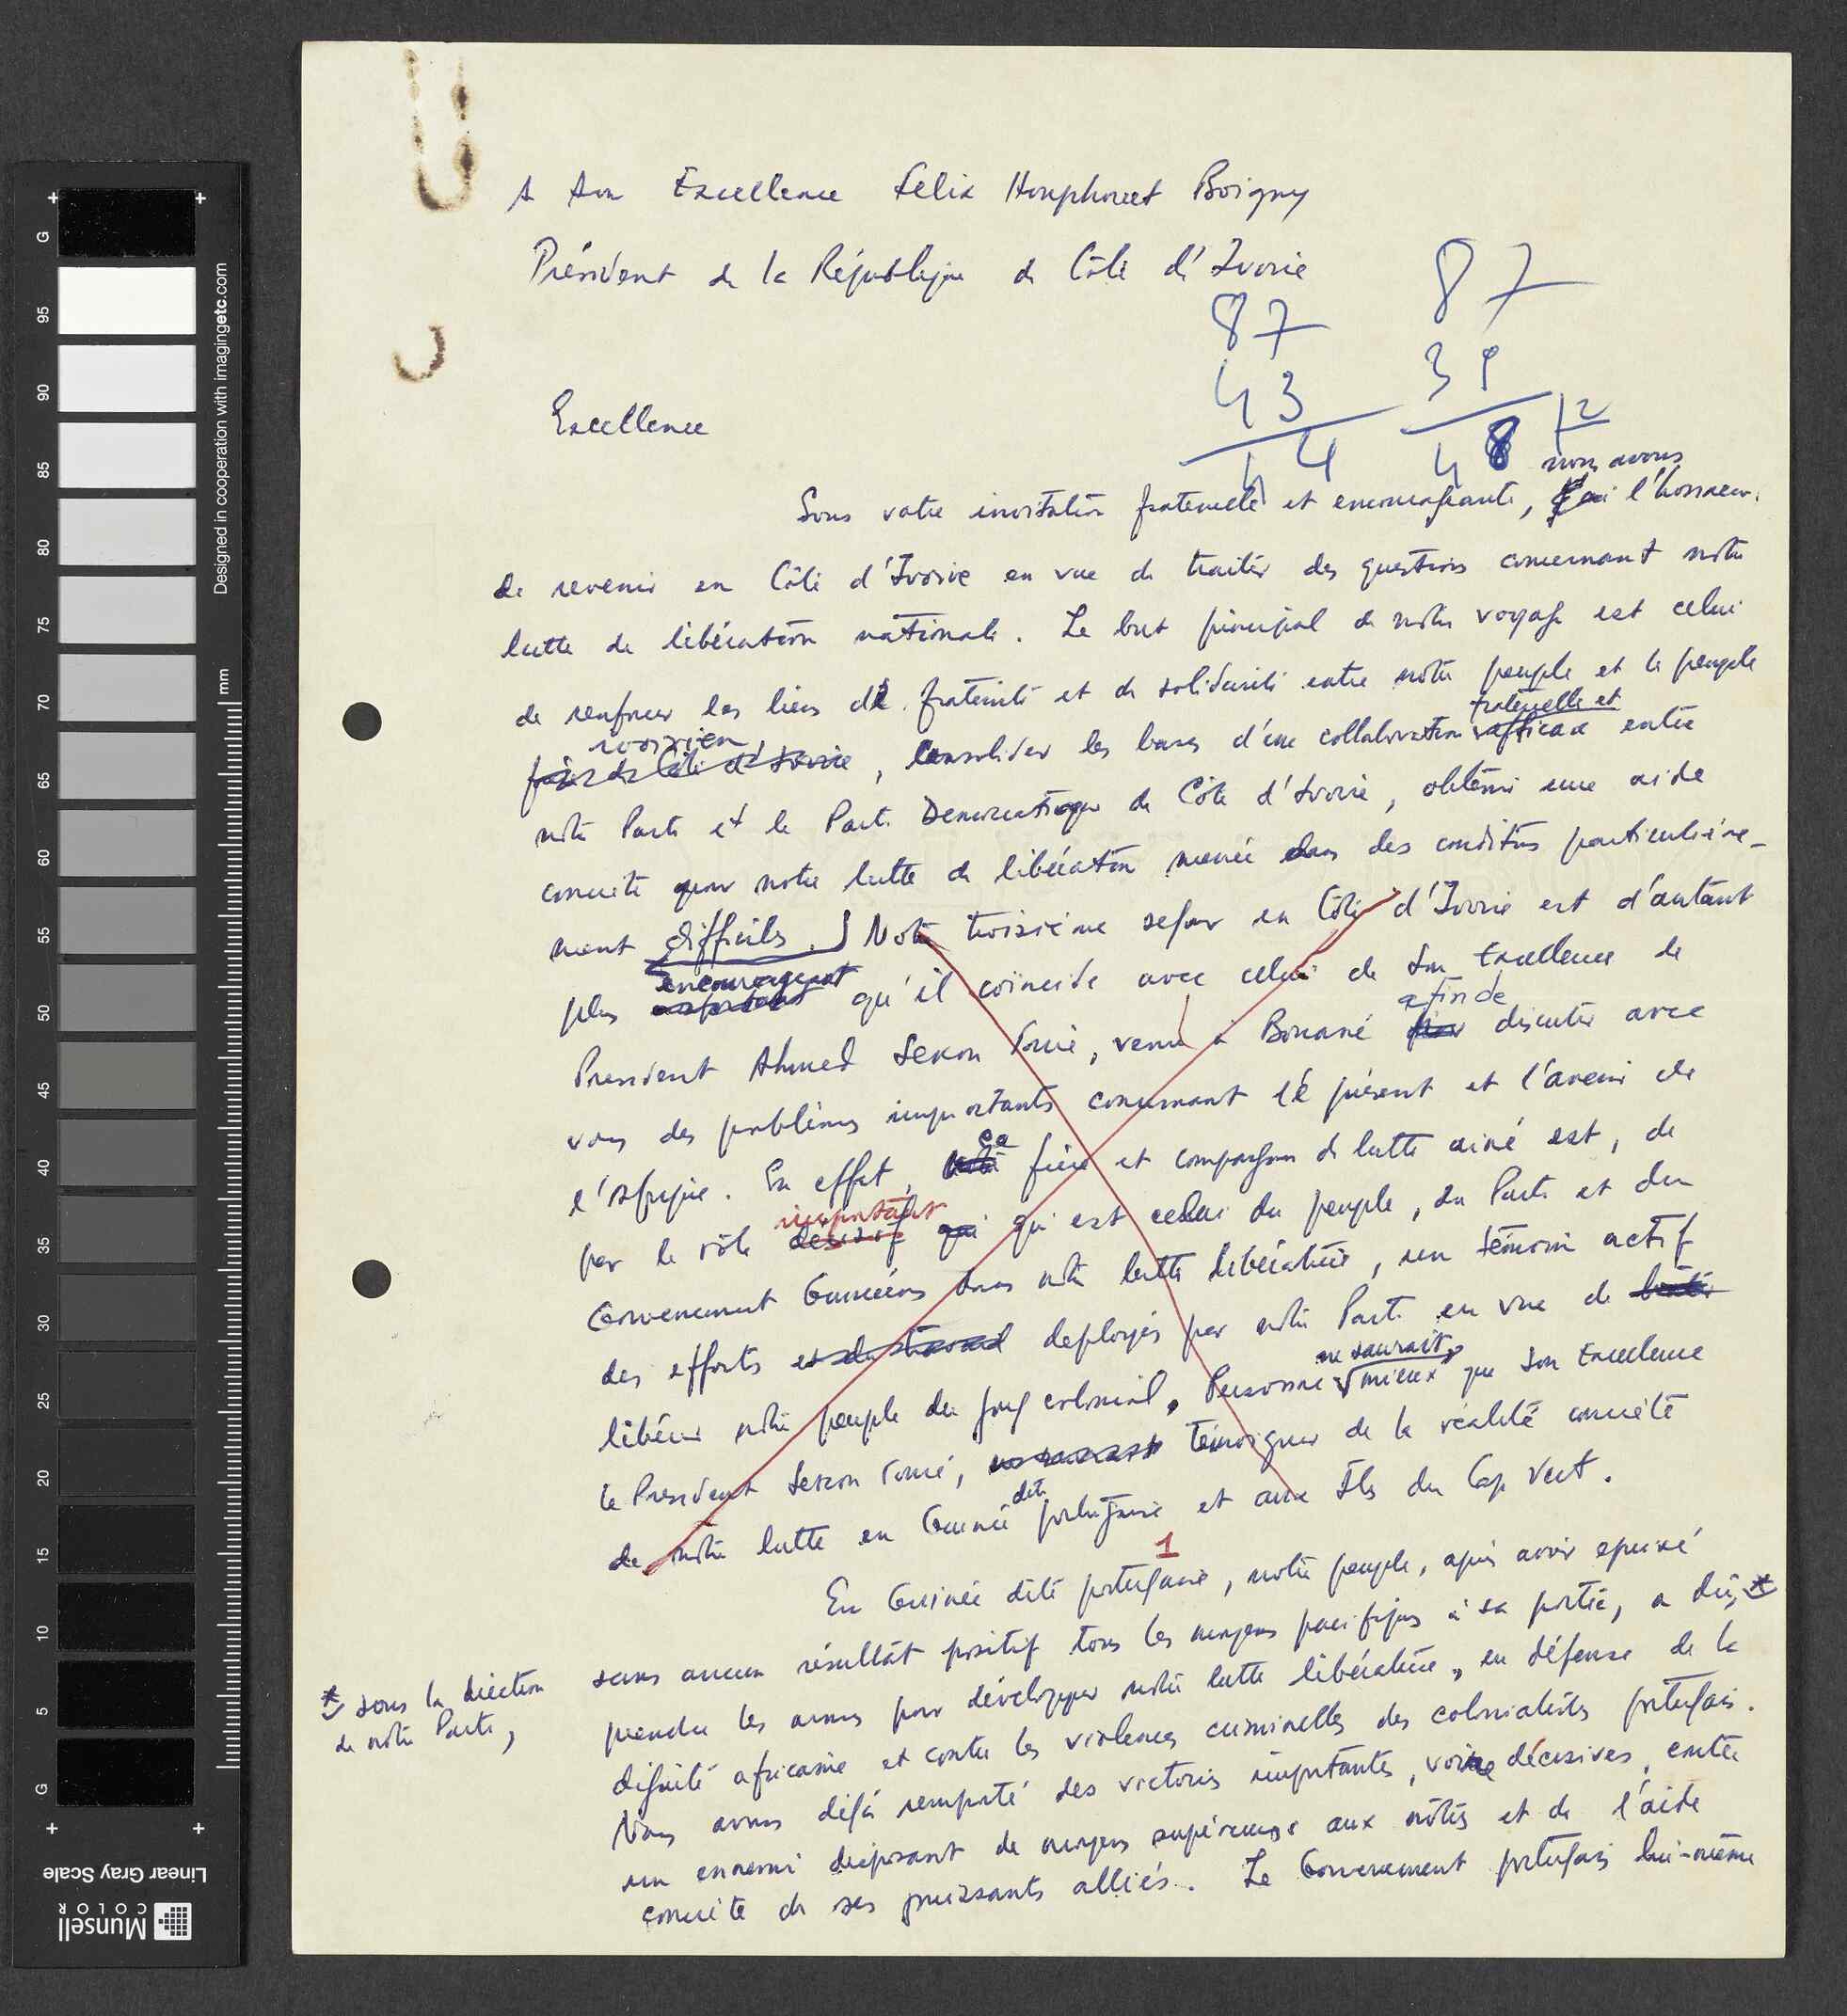 A Son Excellence Felix Houphouet Boigny
Président de la République de Côte d'Ivoire
87
43
44
87
39
48
12
Excellence
nous avons
Sous votre invitation fraternelle et encourageante, j'ai l'honneur
de revenir en Côte d'Ivoire en vue de traiter des questions concernant notre
lutte de libération nationale. Le but principal de notre voyage est celui
de renforcer les liens de fraternité et de solidarité entre notre peuple et le peuple
ivoirien, fraternelle et
frère de Côte d'Ivoire, consolider les bases d'une collaboration efficace entre
notre Parti et le Parti Democratique de Côte d'Ivoire, obtenir une aide
concrète pour notre lutte de libération menée dans des conditions particulière-
ment difficiles. Notre troisième sejour en Côte d'Ivoire est d'autant
encourageant
plus important qu'il coïncide avec celui de Son Excellence le
afin de
President Ahmed Sekou Touré, venu à Bouaké pour discuter avec
vous des problèmes importants concernant le présent et l'avenir de
ce
l'Afrique. En effet, frère et compagnon de lutte ainé est, de
important
par le rôle decisif qui qui est celui du peuple, du Parti et du
Gouvernement Guinéens dans notre lutte libératrice, un témoin actif
des efforts et du travail deployés par notre Parti en vue de
ne saurait,
libérer notre peuple du joug colonial. Personne mieux que Son Excellence
le President Sekou Touré, ne saurait témoigner de la réalité concrète
dite
de notre lutte en Guinée portugaise et aux Iles du Cap Vert.
1
En Guinée dite portugaise, notre peuple, après avoir epuisé
sans aucun résultat positif tous les moyens pacifiques à sa portée, a dû, *
* sous la direction
de notre Parti,
prendre les armes pour développer notre lutte libératrice, en défense de la
dignité africaine et contre les violences criminelles des colonialistes portugais.
Nous avons déjà remporté des victoires importantes, voire décisives, contre
un ennemi disposant de moyens supérieurs aux nôtres et de l'aide
concrète de ses puissants alliés. Le Gouvernement portugais lui-même
G 95 90 85 80 75 70 65 60 55 50 45 40 35 30 25 20 15 10 5 G
mm
Designed in cooperation with imagingetc.com
Linear Gray Scale
Munsell
COLOR